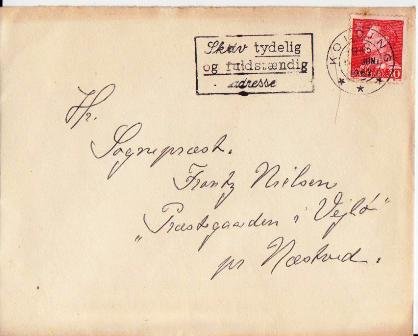 Skriv tydelig
og fuldstændig
adresse
KOLDING
Hr.
Sognepræst.
Frantz Nielsen
"Præstegaarden i Vejlø"
pr Næstved.